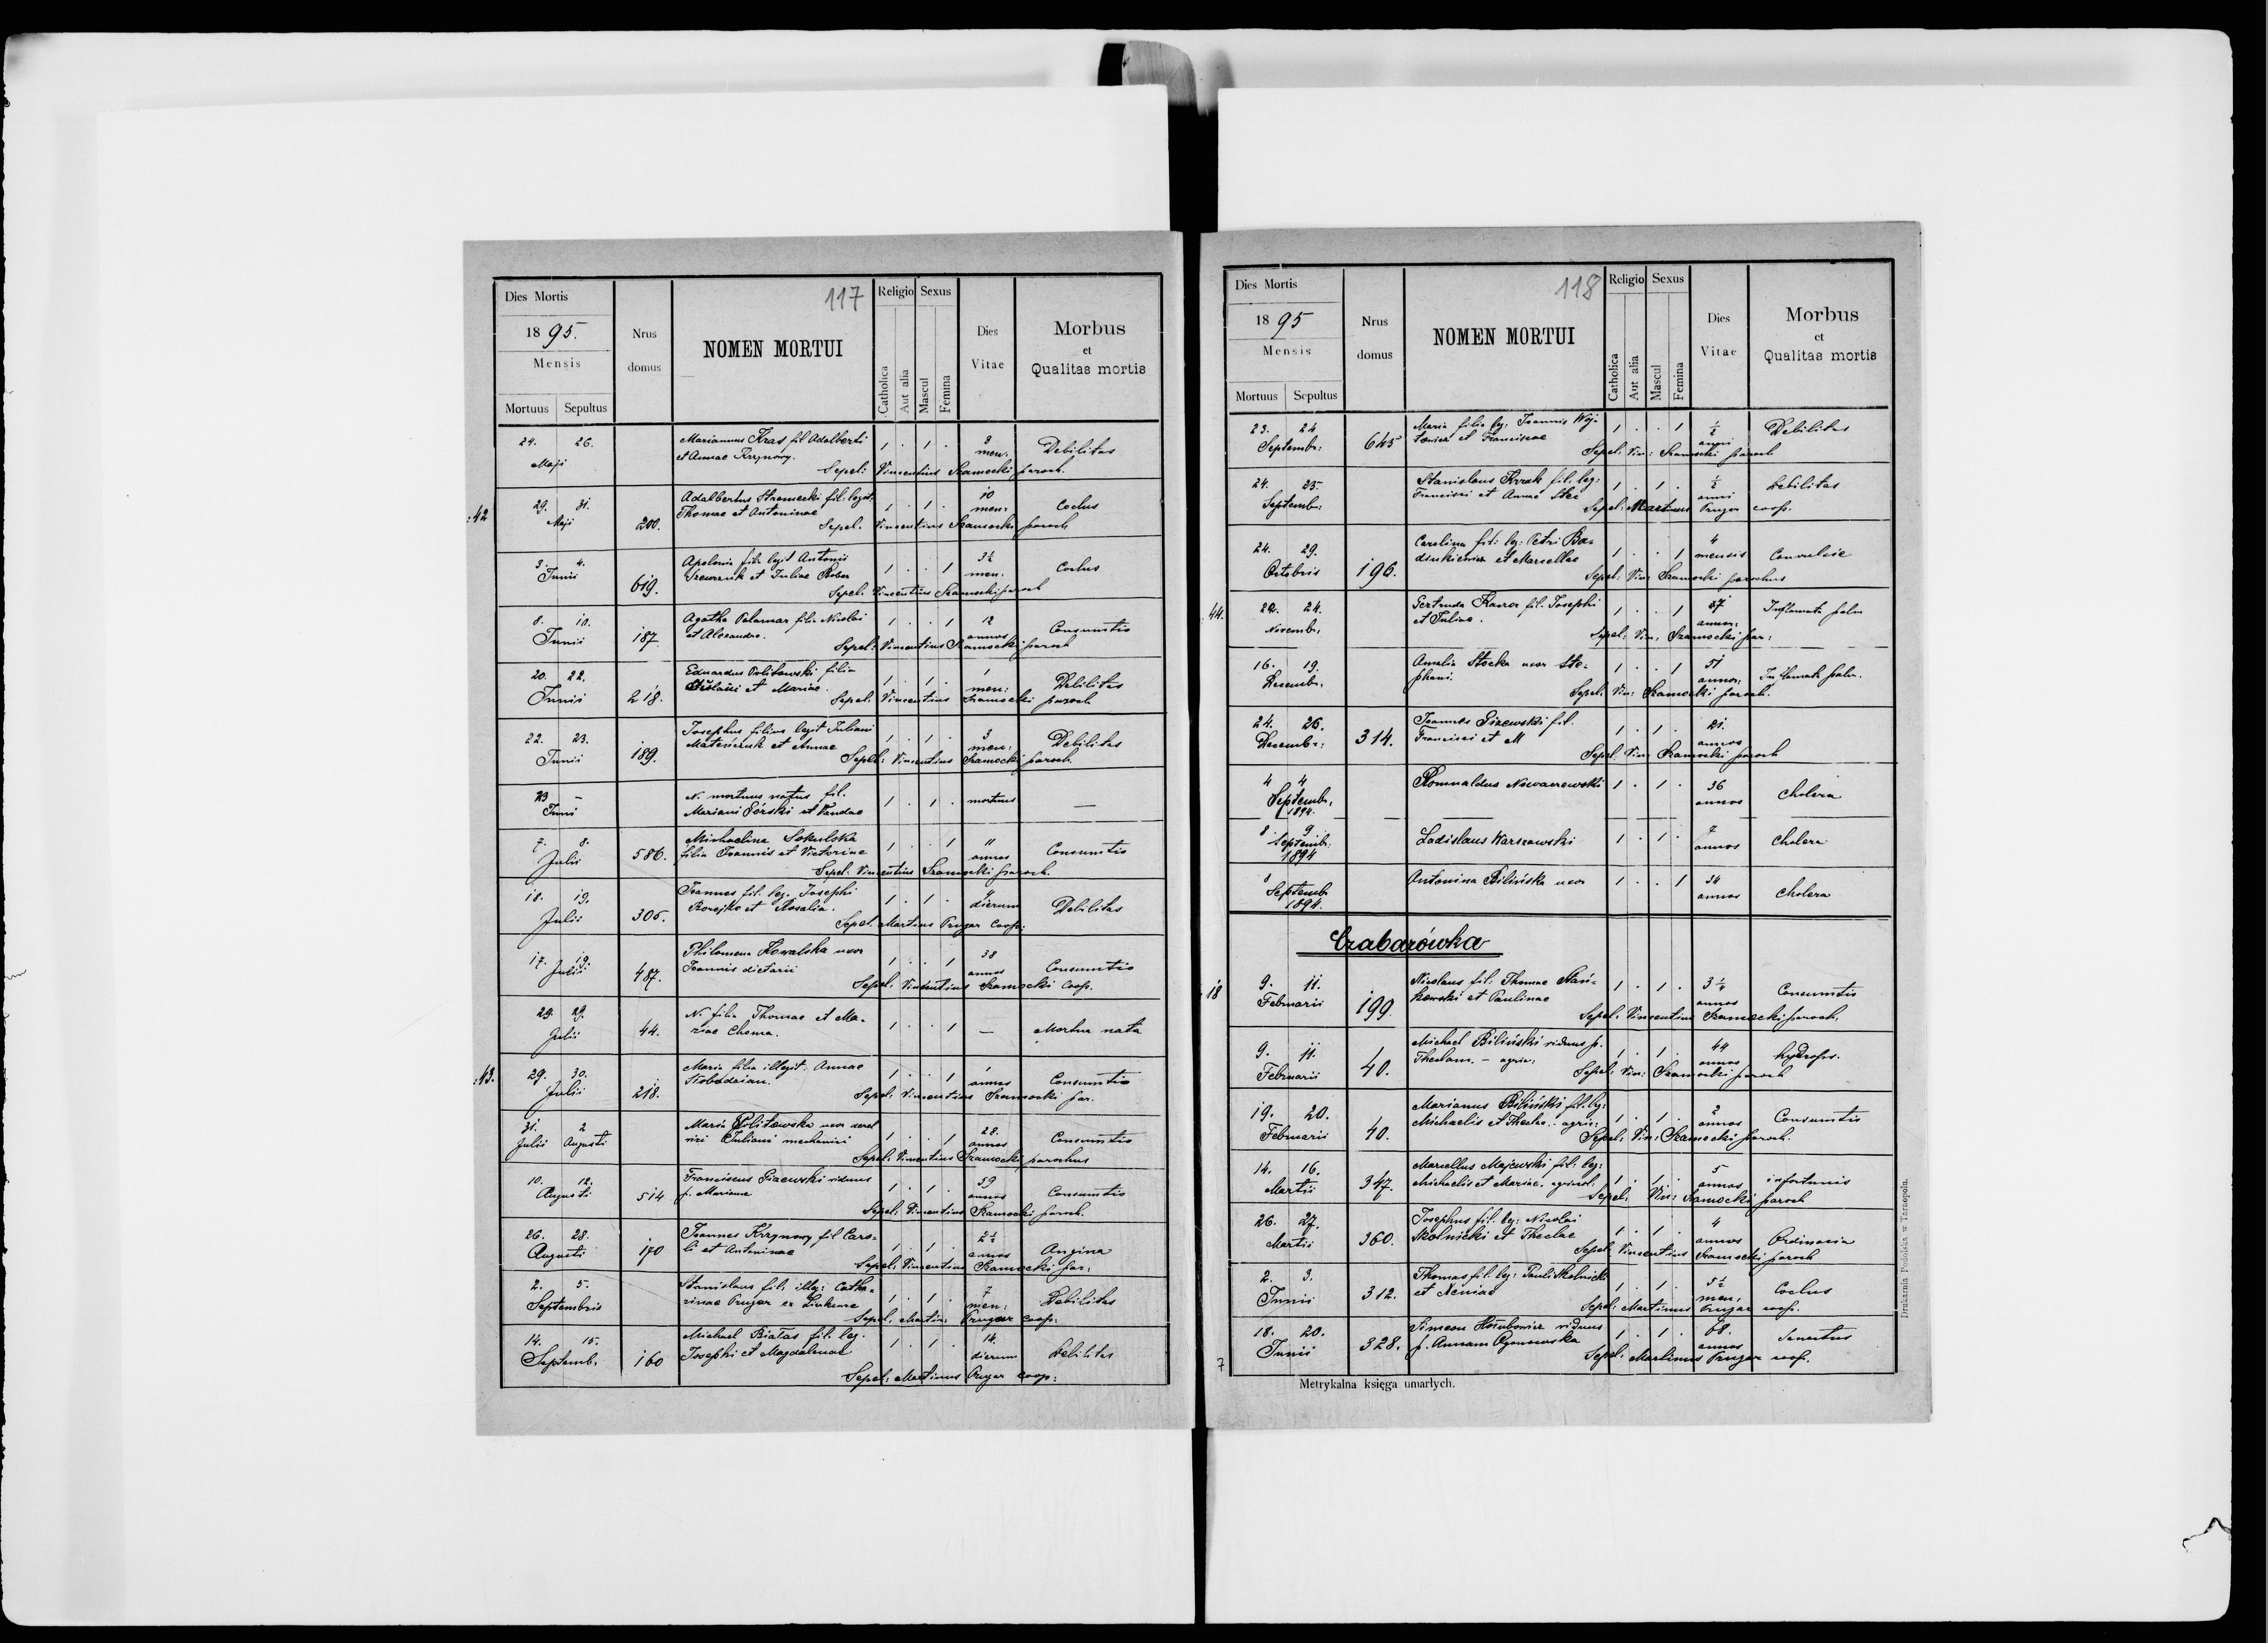 117
Dies Mortis
1895.
Mensis
Mortuus Sepultus
Nrus domus
NOMEN MORTUI
Religio
Catholica
Aut alia
Sexus
Mascul
Femina
Dies Vitae
Morbus
et
Qualitas mortis
24. 26. Marianus Kras fil Adalberti 1 . 1 . Debilitas
Maji et Annae Krzynówy. men.
Sepel: Vincentius Szamocki paroch.
:42
29. 31. Adalbertus Stremecki fil: legit: 1 . 1 . 10 Coelus
Maji 200. Thomae et Antoninae men:
Sepel. Vincentius Szamocki paroch
3. 4. Apolonia fil: legit Antonii 1 . . 1 3½ Coelus
Junii 619. et Juliae Bober men.
Sepel. Vincentius Szamocki paroch
8. 10. Agatha Palamar filia Nicolai 1 . . 1 12 Consumtio
Junii 187. et Alexandra. annos
Sepel: Vincentius Szamocki paroch
20. 22. Eduardus Politowski filia 1 . 1 . 1 Debilitas
Junii 218. et Mariae. men:
Sepel. Vincentius Szamocki paroch
22. 23. Josephus filius legit Juliani 1 . 1 . 3 Debilitas
Junii 189. et Annae men:
Sepel: Vincentius Szamocki paroch.
23 – N. mortuus natus fil. 1 . 1 . mortuus —
Junii Mariani Górski et Vandae
7. 8. Michaelina Sokulska 1 . . 1 11 Consumtio
Julii 586. filia Joannis et Victoriae annos
Sepel: Vincentius Szamocki paroch.
18. 19. Joannes fil. leg. Josephi 1 . 1 . dierum Debilitas
Julii 305. et Rosalia.
Sepel. Martinus Prugar coop:
17. 19. Philomena Kowalska uxor 1 . . 1 38 Consumtio
Julii 487. Joannis dietarii annos
Sepel. Vincentius Szamocki coop.
29. 29. N. filia Thomae et Ma- 1 . . 1 – Mortua nata
Julii 44. riae Choma.
:43.
29. 30. Maria filia illegit. Annae 1 . . 1 1 Consumtio
Julii 218. annos
Sepel: Vincentius Szamocki par.
31. 2 Maria Politowska uxor 1 . . 1 28. Consumtio
Julii Augusti Juliani mechanici annos
Sepel. Vincentius Szamocki parochus
10. 12. Franciscus Gizewski viduus 1 . 1 . 59 Consumtio
Augusti 514 p. Mariana annos
Sepel: Vincentius Szamocki paroch.
26. 28. Joannes Krzynowy fil Caro- 1 . 1 . 2½ Angina
Augusti 170 li et Antoninae annos
Sepel: Vincentius Szamocki par:
2. 5. Stanislaus fil: illeg: Catha- 1 . 1 . 7 Debilitas
Septembris rinae Prugar ex men:
Sepel. Martin: Prugar coop:
14. 15. Michael Białas fil. leg. 1 . 1 . 14. Debilitas
Septemb. 160 Josephi et Magdalenae dierum
Sepel: Martinus Prugar coop:
118
Dies Mortis
1895
Mensis
Mortuus Sepultus
Nrus domus
NOMEN MORTUI
Religio
Catholica
Aut alia
Sexus
Mascul
Femina
Dies Vitae
Morbus
et
Qualitas mortis
23. 24 Maria filia leg: Joannis Woj- 1 . . 1 ½ Debilitas
Septembr: 645 towicz et Franciscae anni
Sepel: Vin: Szamocki paroch
24. 25. Stanislaus fil. leg: 1 . 1 . ½ Debilitas
Septemb: Francisci et Annae anni
Sepel: Martinus Prugar coop.
24. 29. Carolina fil: leg: Petri Ba- 1 . . 1 4 Convulsie
Octobris 196. dziukiewicz et Marcellae mensis
Sepel: Vin: Szamocki parochus
44.
22. 24. Gertruda fil. Josephi 1 . . 1
Novemb. et Juliae. annor:
Sepel: Vin: Szamocki par:
16. 19. Amalia Stocka uxor Ste- 1 . . 1 51
Decemb. phani. annor:
Sepel. Vin: Szamocki paroch.
24. 26. Joannes Gizewski fil. 1 . 1 . 21.
Decembr: 314. Francisci et M annos
Sepel. Vin: Szamocki paroch
4 4 Romualdus Nowaczewski 1 . 1 . 36 Cholera
Septemb. annos
1894.
8. 9 Ladislaus Warszawski 1 . 1 . 7 Cholera
Septemb: annos
1894
8 Antonina Bilińska uxor 1 . . 1 34 Cholera
Septemb annos
1894.
Czabarówka
18
9. 11. Nicolaus fil: Thomae Stań- 1 . 1 . 3¼ Consumtio
Februarii 199 kowski et Paulinae annos
Sepel: Vincentius Szamocki paroch.
9. 11. Michael Biliński viduus p. 1 . 1 . 44 hydrops.
Februarii 40. Theclam. – agric. annos
Sepel: Vin: Szamocki paroch
19. 20. Marianus Biliński fil. leg: 1 . 1 . 2 Consumtio
Februarii 40. Michaelis et Theclae. agric: annos
Sepel: Vin: Szamocki paroch.
14. 16. Marcellus Majewski fil: leg: 1 . 1 . 5 infortunis
Martii 347. Michaelis et Mariae. agricol. annos
Sepel: Vin: Szamocki paroch
26. 27. Josephus fil. leg: Nicolai 1 . 1 . 4 Ordinaria
Martii 360. Skolnicki et Theclae annos
Sepel: Vincentius Szamocki paroch
2. 3. Thomas fil. leg: Pauli Skolnicki 1 . 1 . 5½ Coelus
Junii 312. et men.
Sepel: Martinus Prugar coop.
18. 20. Simeon viduus 1 . 1 . 68. Senectus
Junii 328. p. Annam annos
Sepel. Martinus Prugar coop.
7
Metrykalna księga umarłych.
Drukarnia Podolska w Tarnopolu.